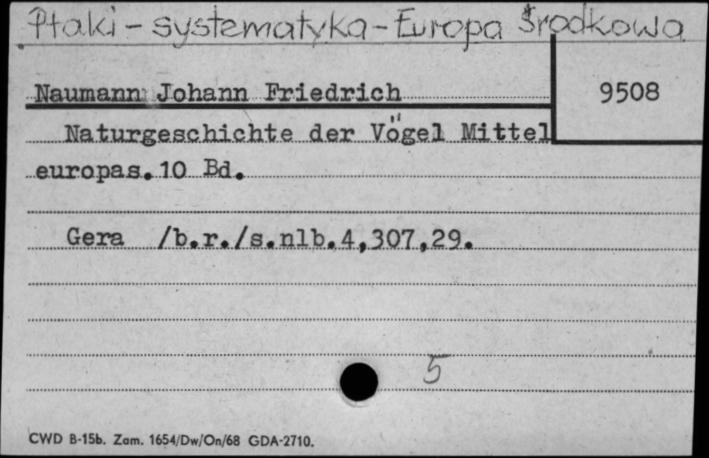 Ptaki - systematyka - Europa Środkowa
Naumann Johann Friedrich
9508
Naturgeschichte der Vögel Mittel
europas. 10 Bd.
Gera /b.r./s.nlb.4,307,29.
5
CWD B-15b. Zam. 1654/Dw/On/68 GDA-2710.